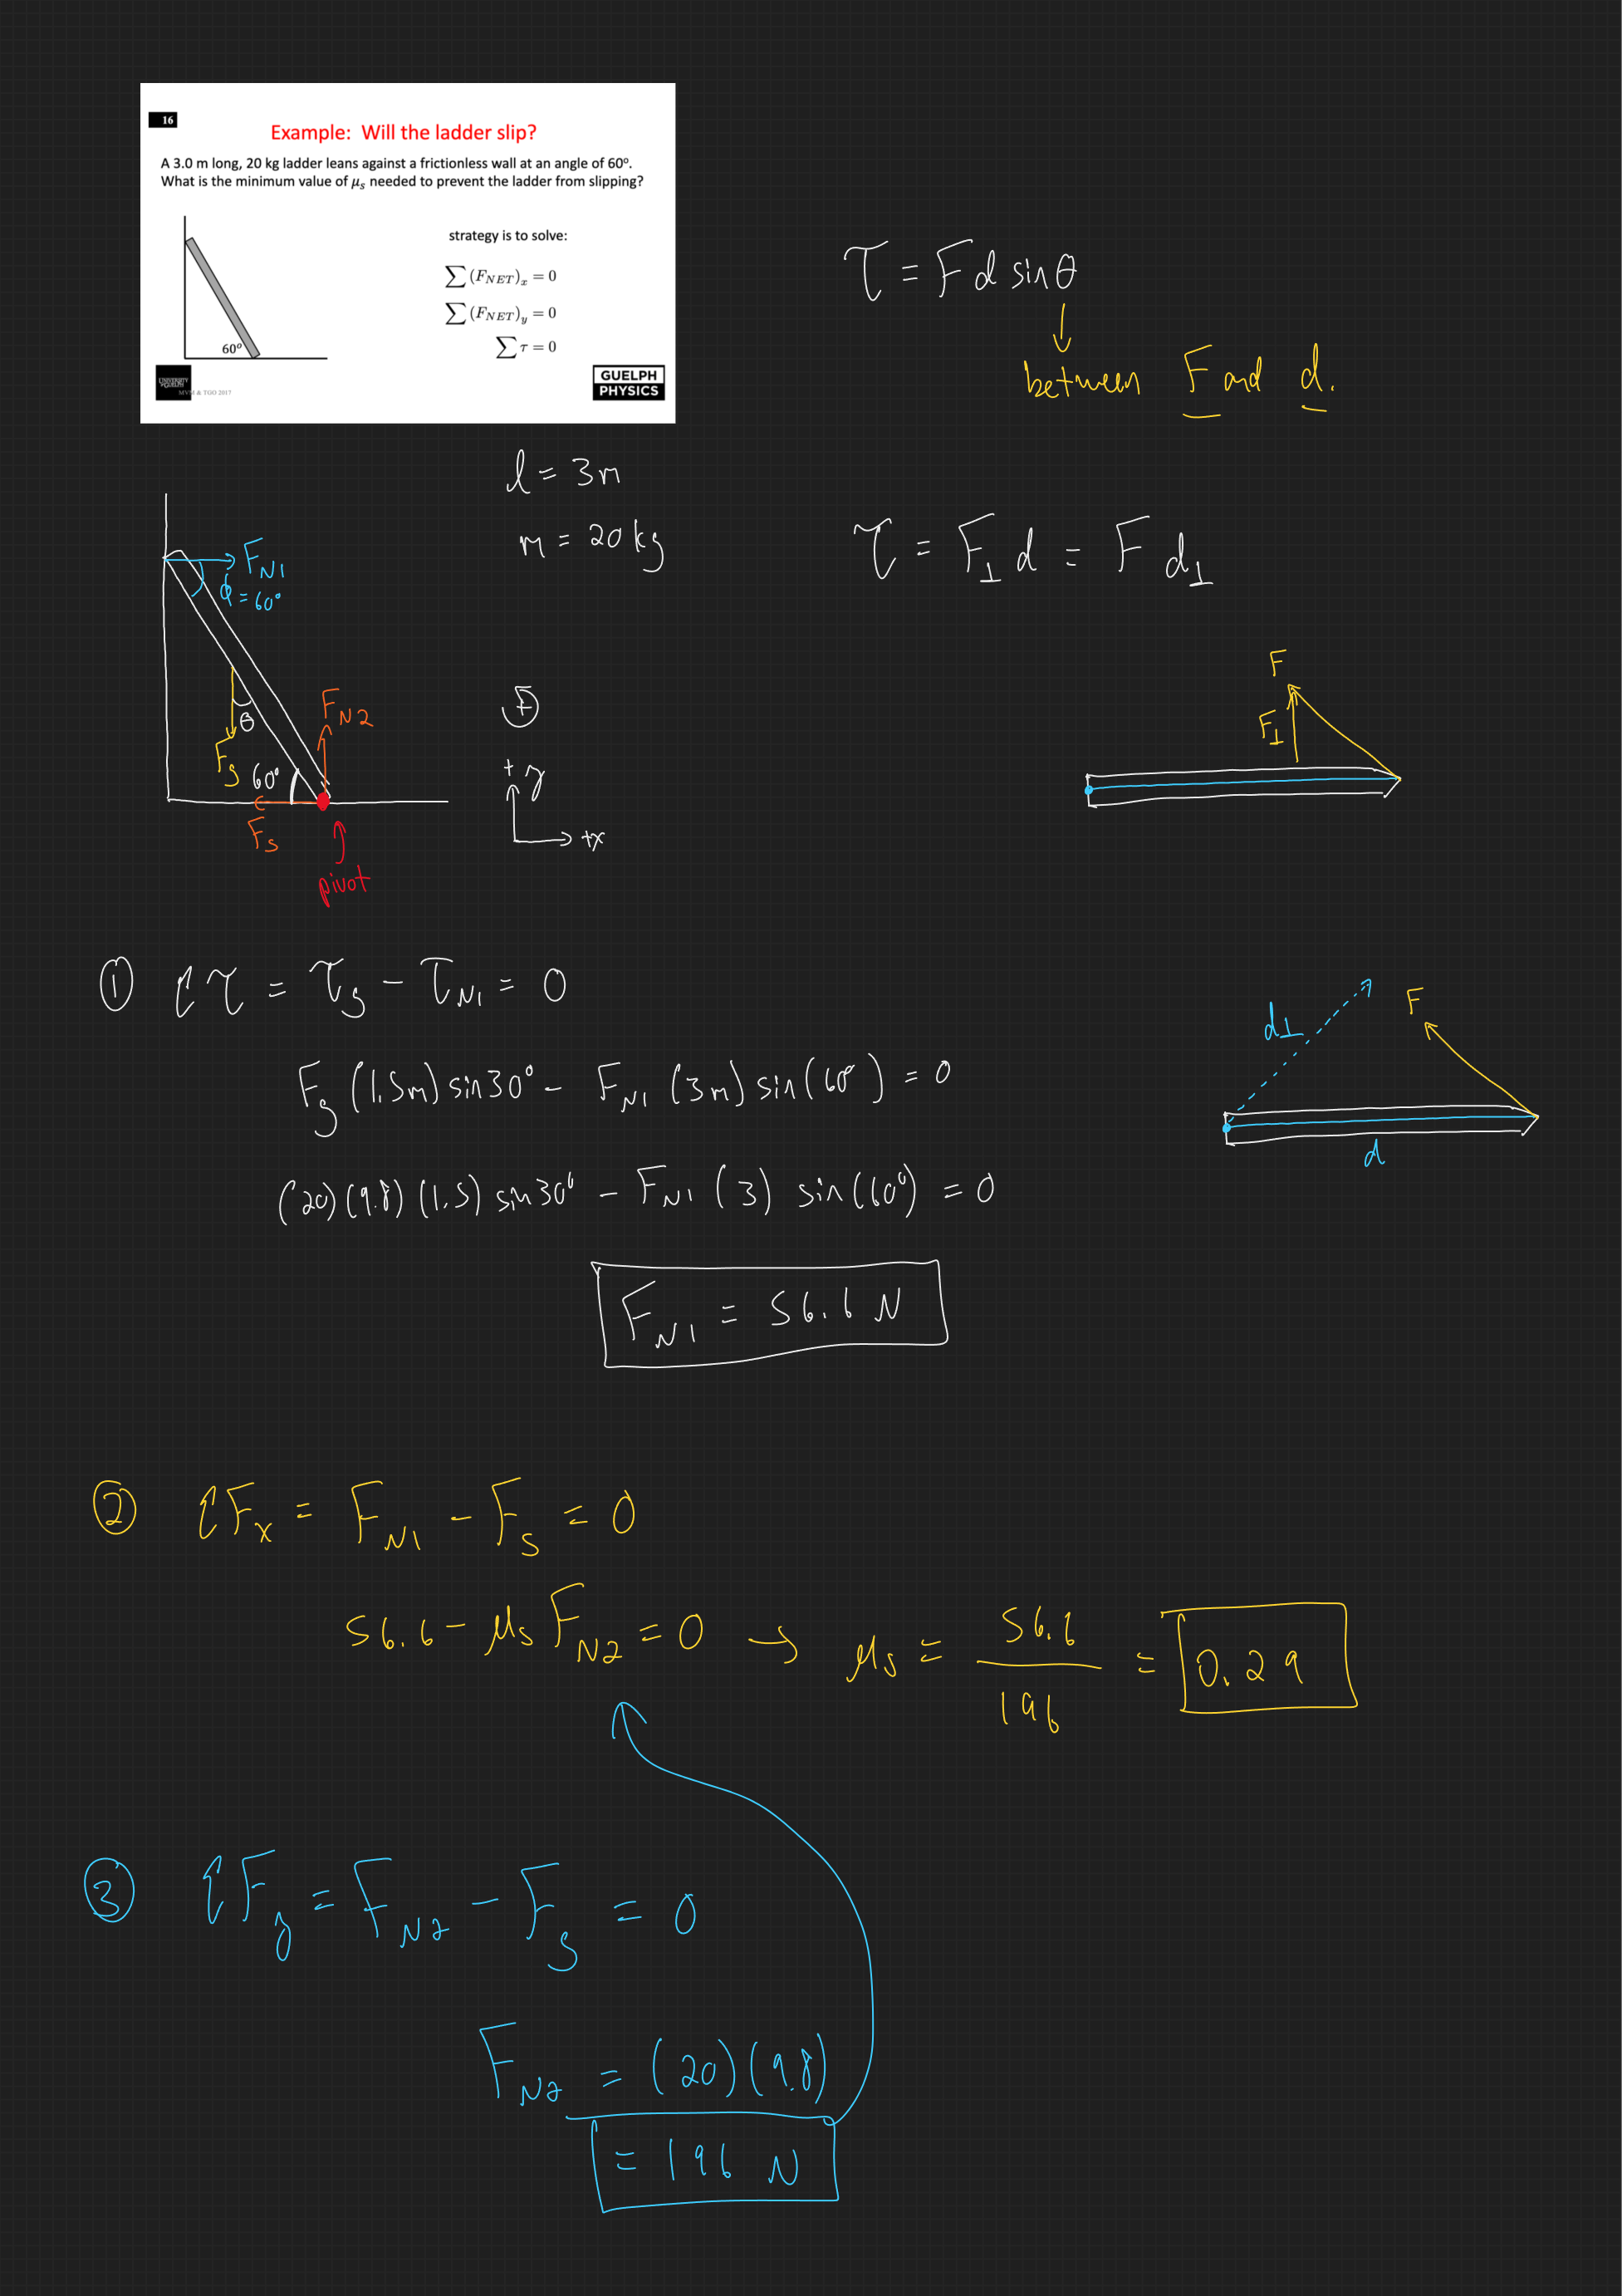 16
Example: Will the ladder slip?
A 3.0 m long, 20 kg ladder leans against a frictionless wall at an angle of 60°.
What is the minimum value of μₛ needed to prevent the ladder from slipping?
strategy is to solve:
∑ (F_NET)_x = 0
∑ (F_NET)_y = 0
∑ τ = 0
60°
UNIVERSITY
of GUELPH
& TGO 2017
GUELPH
PHYSICS
τ = F d sin θ
between F and d.
l = 3m
m = 20 kg
τ = F⊥ d = F d⊥
F_N1
ϕ = 60°
θ
F_g
60°
F_N2
F_s
pivot
+
+y
+x
F
F⊥
① Στ = τ_g - τ_N1 = 0
F_g (1.5m) sin 30° - F_N1 (3m) sin(60°) = 0
(20)(9.8)(1.5) sin 30° - F_N1 (3) sin(60°) = 0
F_N1 = 56.6 N
d⊥
F
d
② ΣF_x = F_N1 - F_s = 0
56.6 - μ_s F_N2 = 0 → μ_s = 56.6 / 196 = 0.29
③ ΣF_y = F_N2 - F_g = 0
F_N2 = (20)(9.8)
= 196 N